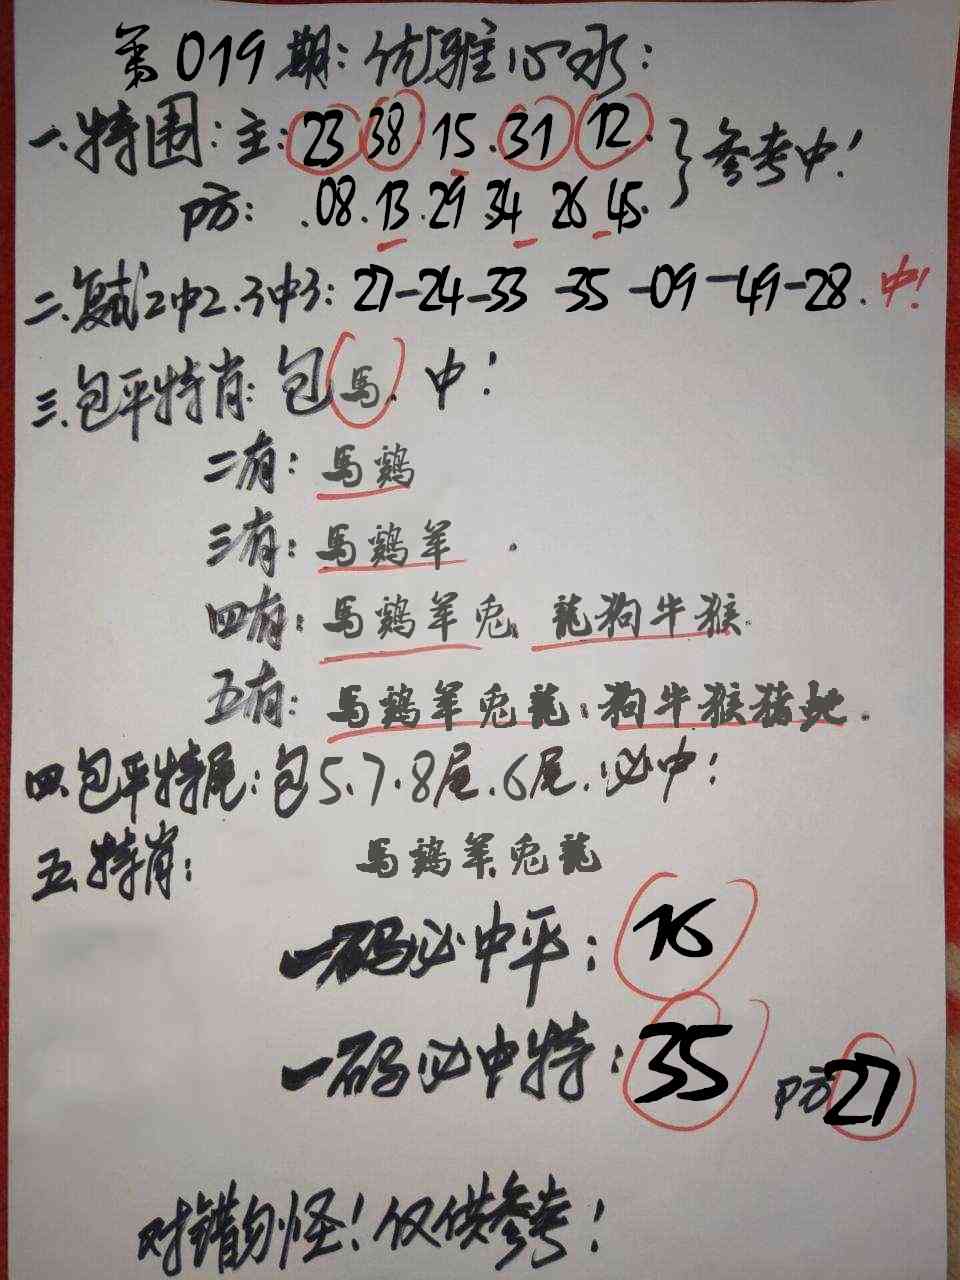 第019期:优雅心水:
一.特围:主:23 38.15.31 12. 参考中!
防:.08.13.29 34 26 45.
二.复式2中2.3中3:27-24-33-35-09-49-28.中!
三.包平特肖:包馬.中!
二有:馬鷄
三有:馬鷄羊.
四有:馬鷄羊兎.龍狗牛猴.
五有:馬鷄羊兎龍:狗牛猴猪蛇.
四.包平特尾:包5.7.8尾.6尾.必中!
五.特肖:馬鷄羊.兎龍
一码必中平:16
一码必中特:35 防27
对错勿怪!仅供参考!